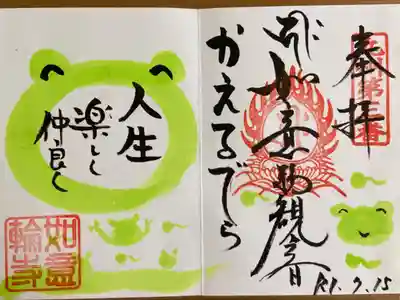 奉拝
如意輪観音
かえるでら
R1.9.15
人生
楽しく
仲良く
如意
輪寺